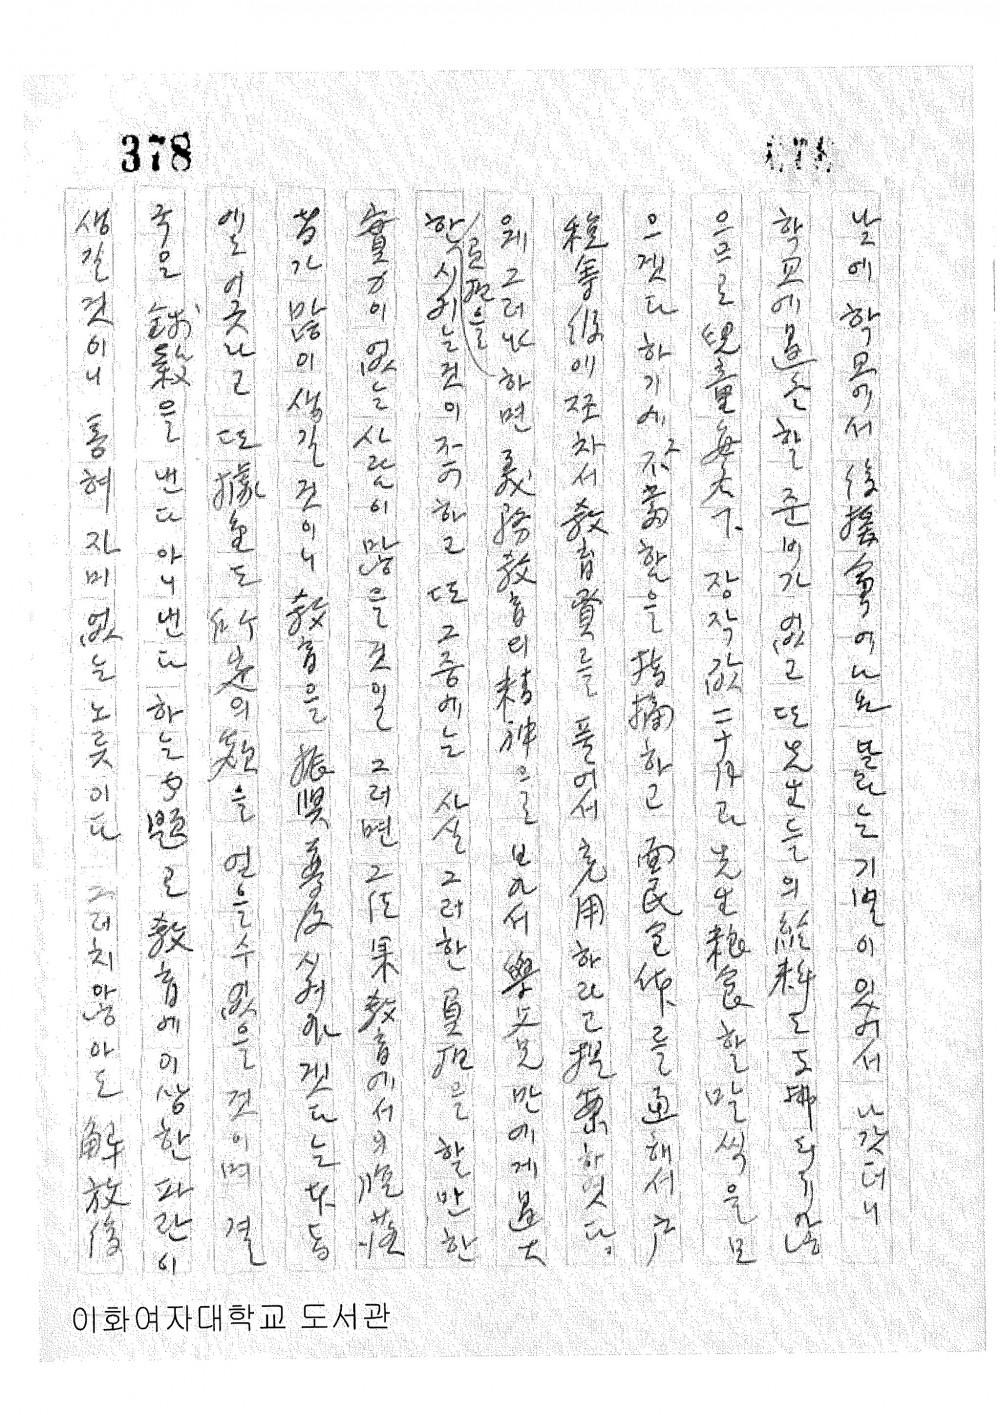 378
날에 학교에서 後援會 여니 오라는 기별이 있어서 나갓더니
학교에 過冬할 준비가 없고 또 先生들의 給料도 支拂되지 않
으므로 兒童每名下 장작값 二十円과 先生粮食 할 말씩을 모
으겟다 하기에 不當함을 指摘하고 面民全体를 通해서 戶
稅等級에 조차서 敎育費를 풀어서 充用하라고 提案하엿다.
웨그러냐하면 義務敎育의 精神으로 보아서 學父兄만에게 過大
한 負担을 시키는것이 주이하고 또 그중에는 사실 그러한 負担을 할만한
實力이 없는 사람이 많을 것일 그러면 그 結果 敎育에서의 脫落
者가 많이 생길 것이니 敎育을 振興 普及 식혀가겟다는 本意
에도 어긋나고 또 據金도 所定의 額을 얻을 수 없을 것이며 결
국은 錢穀을 낸다 아니낸다 하는 問題로 敎育에 이상한 파란이
생길것이니 통혀 자미없는 노릇이다 그러치않아도 解放後
이화여자대학교 도서관